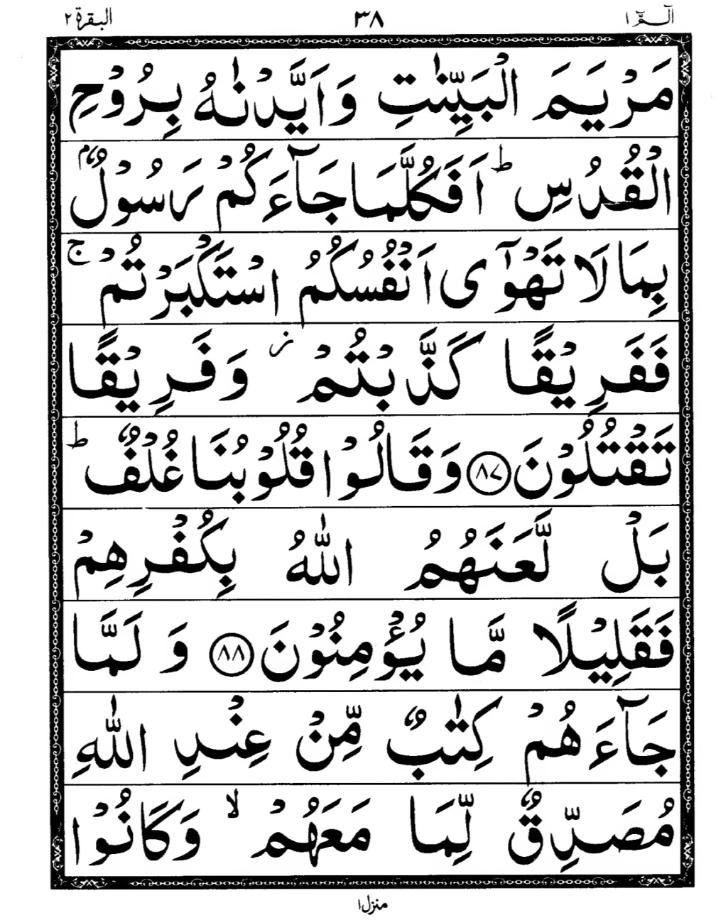 الٓمّٓ ١ ٣٨ البقرة ٢
مَرْيَمَ الْبَيِّنٰتِ وَاَيَّدْنٰهُ بِرُوْحِ
الْقُدُسِ ؕ اَفَكُلَّمَا جَآءَكُمْ رَسُوْلٌۢ
بِمَا لَا تَهْوٰٓى اَنْفُسُكُمُ اسْتَكْبَرْتُمْ ۚ
فَفَرِيْقًا كَذَّبْتُمْ ؗ وَفَرِيْقًا
تَقْتُلُوْنَ ﴿٨٧﴾ وَقَالُوْا قُلُوْبُنَا غُلْفٌ ؕ
بَلْ لَّعَنَهُمُ اللّٰهُ بِكُفْرِهِمْ
فَقَلِيْلًا مَّا يُؤْمِنُوْنَ ﴿٨٨﴾ وَلَمَّا
جَآءَهُمْ كِتٰبٌ مِّنْ عِنْدِ اللّٰهِ
مُصَدِّقٌ لِّمَا مَعَهُمْ ۙ وَكَانُوْا
منزل ١